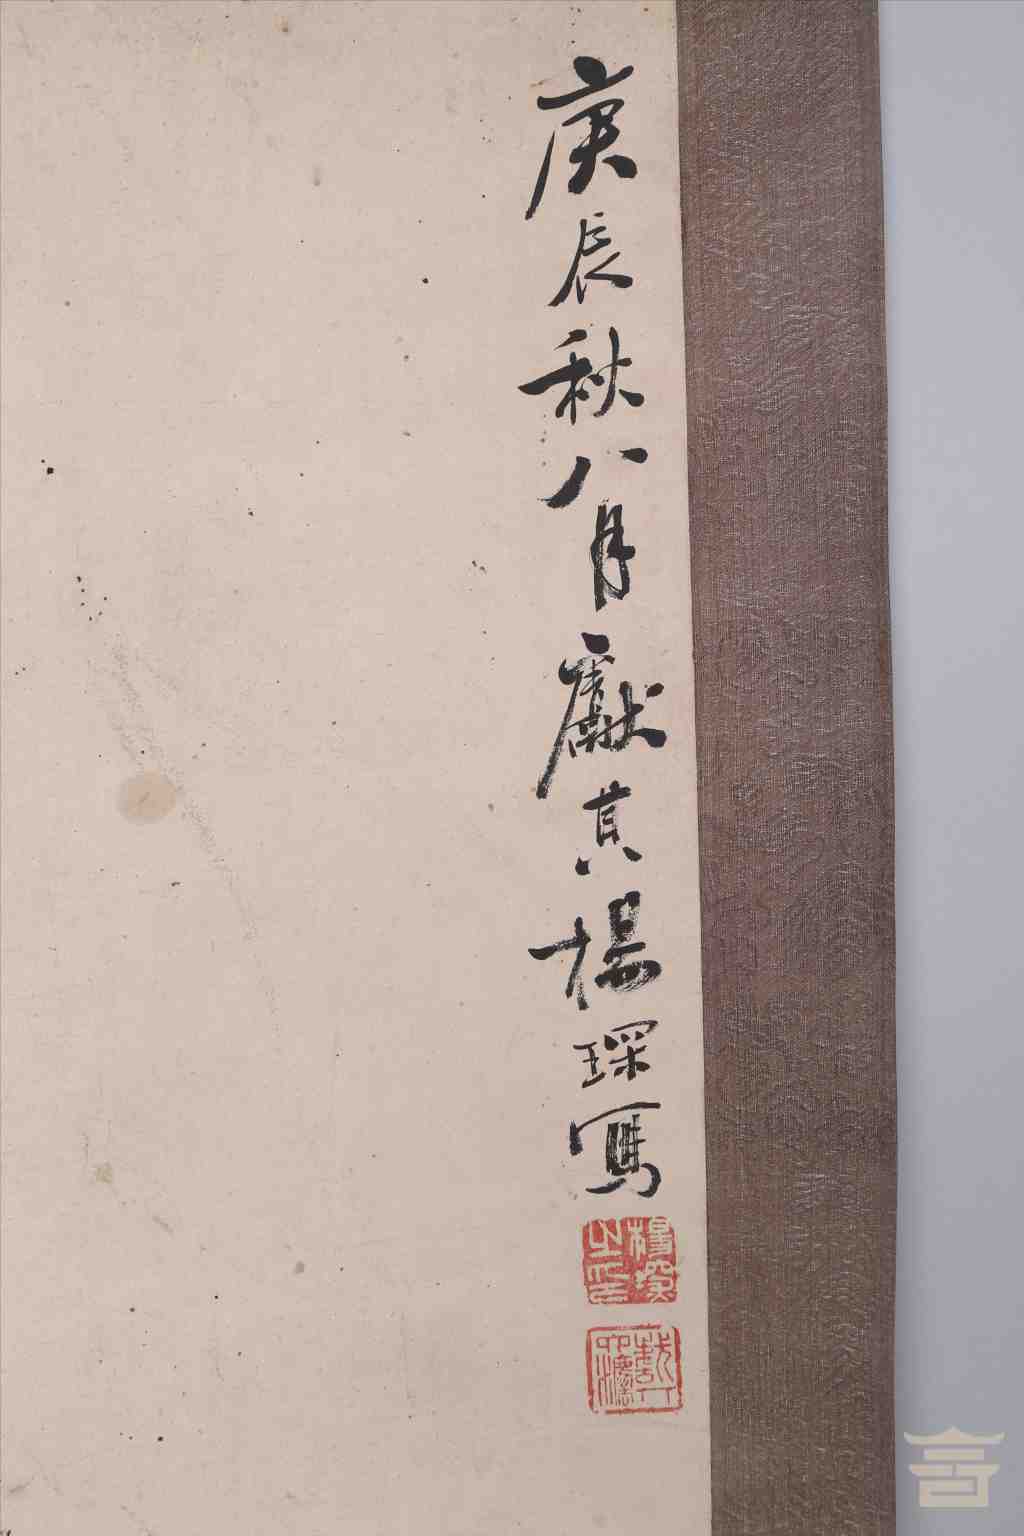 庚辰秋八月獻真楊琛寫
楊琛之印